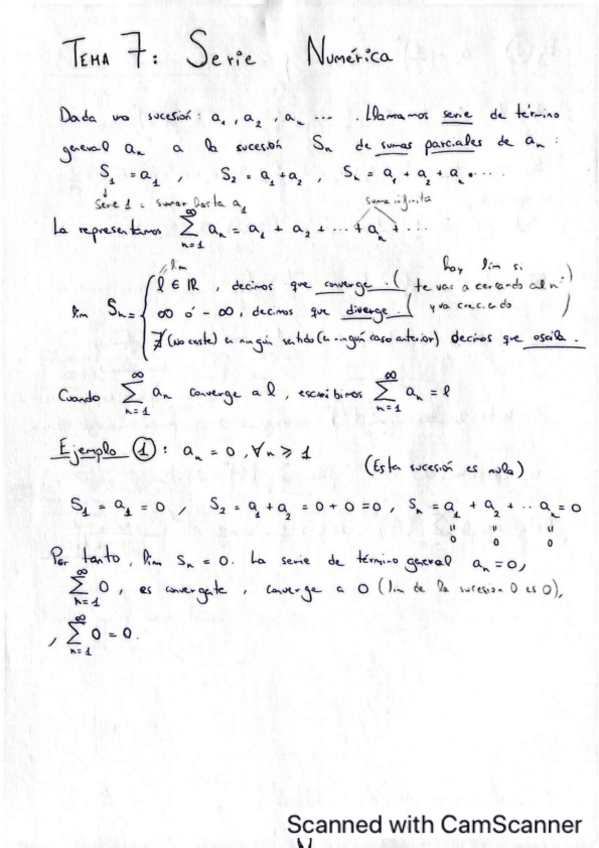 TEMA 7: Serie Numérica
Dada una sucesión: a₁, a₂, aₙ .... Llamamos serie de término
general aₙ a la sucesión Sₙ de sumas parciales de aₙ:
S₁ = a₁, S₂ = a₁ + a₂, Sₙ = a₁ + a₂ + aₙ....
Serie 1 = sumar hasta a₁ suma infinita
La representamos ∞∑n=1 aₙ = a₁ + a₂ + ... + aₙ + ...
// lim hay lim si
l ∈ ℝ, decimos que converge. ( te vas acercando al nº )
lim Sₙ = { ∞ ó -∞, decimos que diverge. ( y va creciendo )
∄ (no existe) en ningún sentido (en ningún caso anterior) decimos que oscila.
Cuando ∞∑n=1 aₙ converge a l, escribimos ∞∑n=1 aₙ = l
Ejemplo ①: aₙ = 0, ∀n ⩾ 1
(Esta sucesión es nula)
S₁ = a₁ = 0, S₂ = a₁ + a₂ = 0 + 0 = 0, Sₙ = a₁ + a₂ + .. aₙ = 0
" " "
0 0 0
Por tanto, lim Sₙ = 0. La serie de término general aₙ = 0,
∞∑n=1 0, es convergente, converge a 0 (lim de la sucesion 0 es 0),
, ∞∑n=1 0 = 0.
Scanned with CamScanner